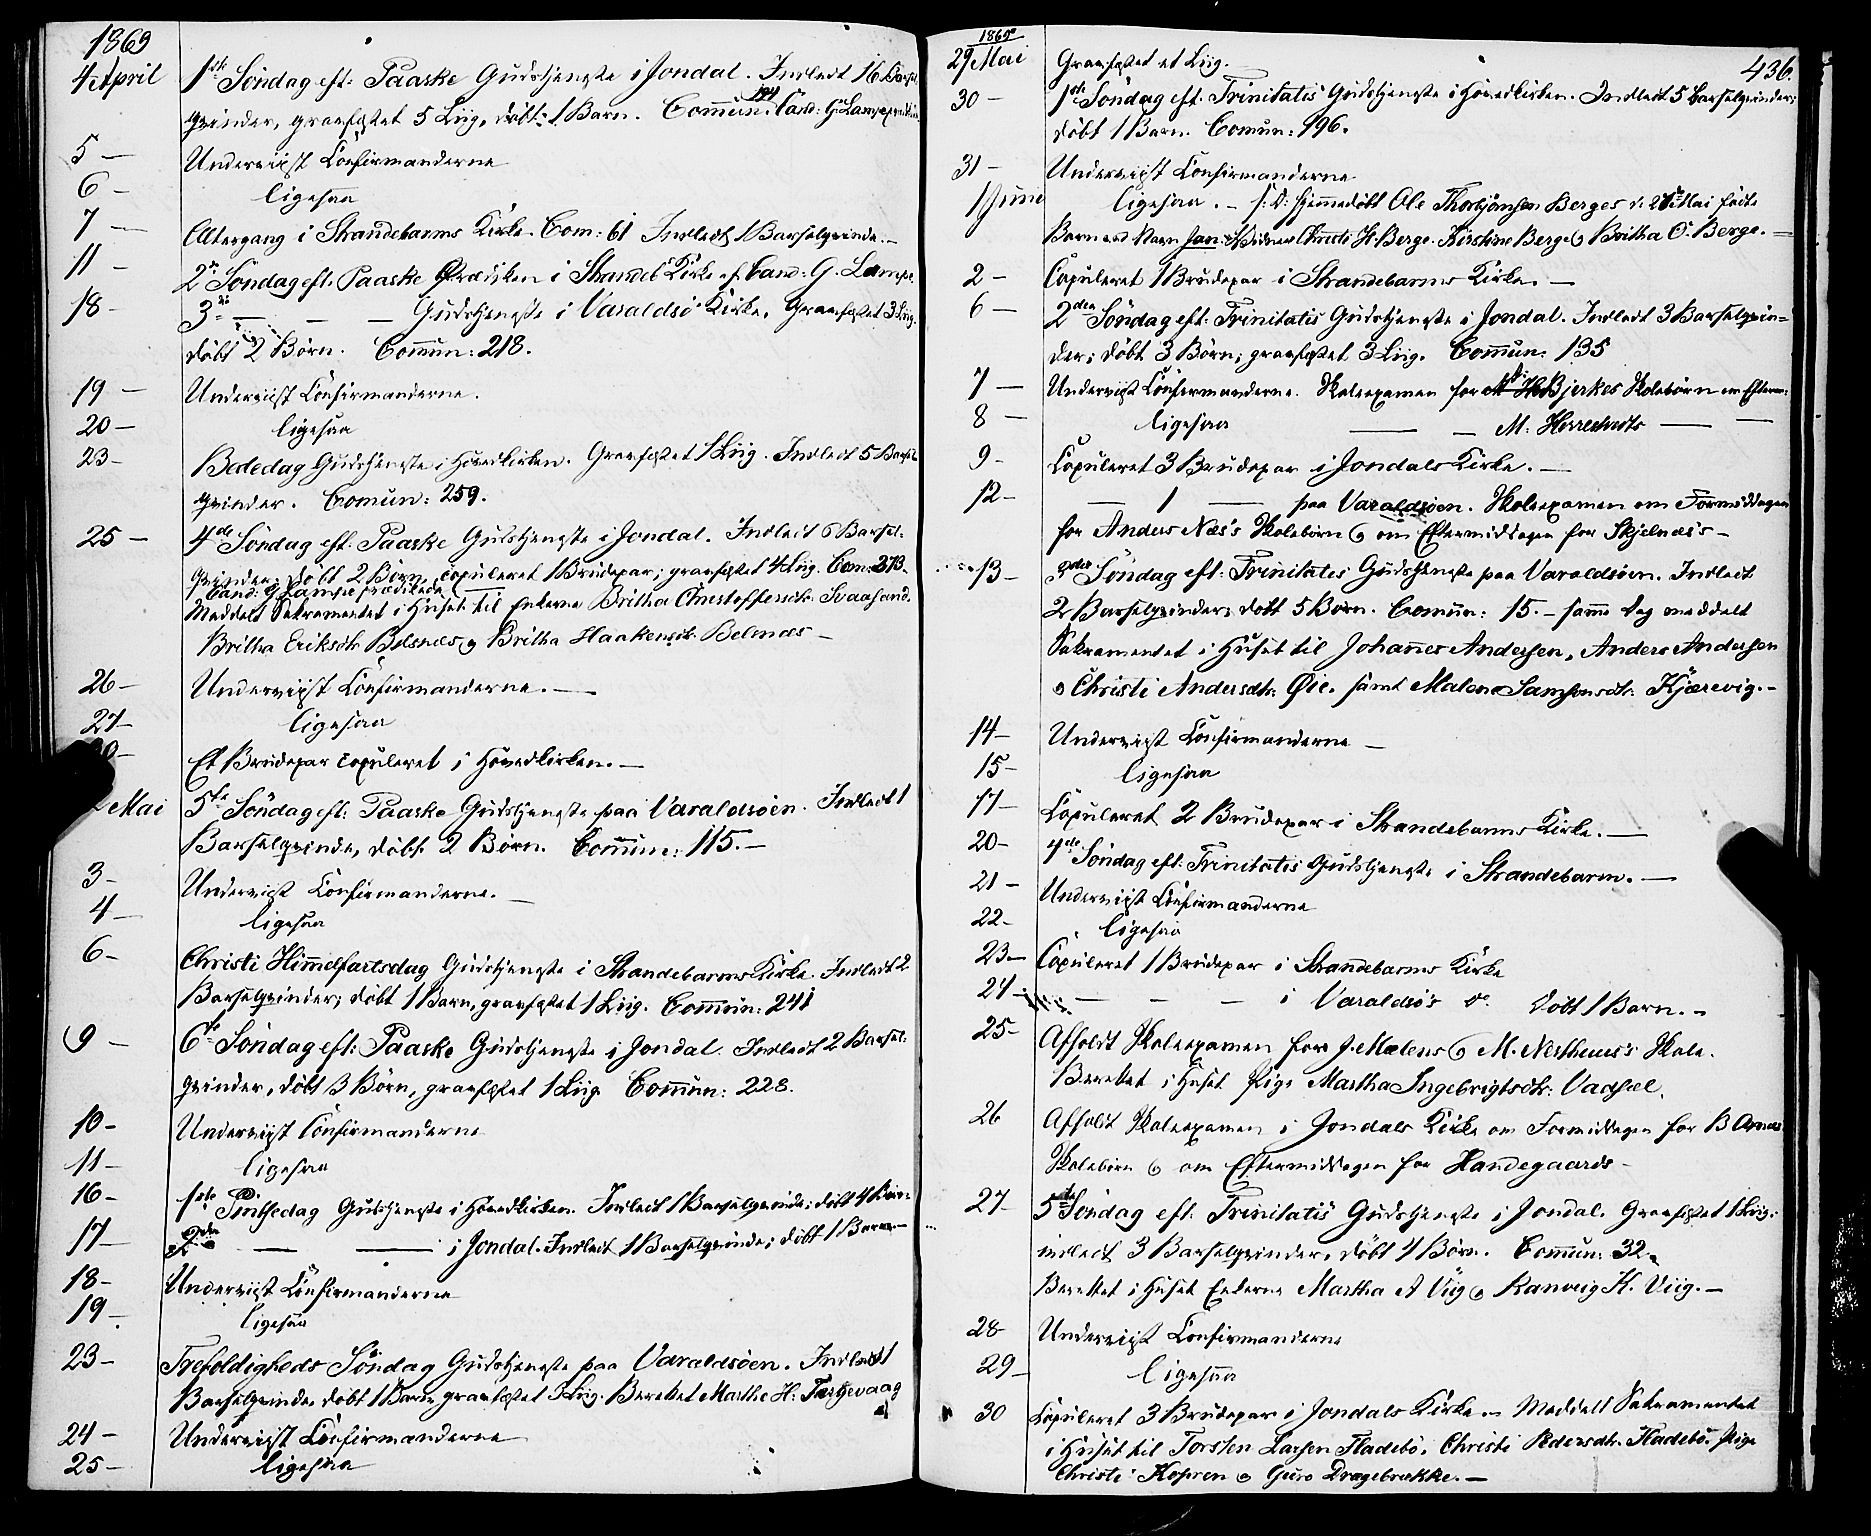 1869
4 April 1ste Söndag eft: Paaske Gudstjeneste i Jondal. Indledt 16 Barsel-
qvinder, graefæstet 5 Liig, döbt 1 Barn. Commun: 194 Cand: G: Lampe prædikede
5 — Underviist Confirmanderne
6 — ligesaa
7 — Altergang i Strandebarms Kirke. Com: 61 Indledt 1 Barselqvinde. —
11 — 2den Söndag eft. Paaske Prædiken i Strandeb: Kirke af Cand: G. Lampe.
18 — 3die — — — Gudstjeneste i Varaldsö Kirke. Graefæstet 3 Liig.
döbt 2 Börn. Commun: 218.
19 — Underviist Confirmanderne.
20 — ligesaa
23 — Bededag Gudstjeneste i Hovedkirken. Graefæstet 1 Liig. Indledt 5 Barsel-
qvinder. Comun: 259.
25 — 4de Söndag eft. Paaske Gudstjeneste i Jondal. Indledt 6 Barsel-
qvinder; döbt 2 Börn, copuleret 1 Brudepar; graefæstet 4 Liig. Com: 273.
Cand: G Lampe prædikede
Meddelt Sakramentet i Huset til Enkerne Britha Christoffersdtr. Svaasand.
Britha Eriksdtr Belsnæs og Britha Haakensdtr. Belsnæs —
26 — Underviist Confirmanderne. —
27 — ligesaa
Et Brudepar copuleret i Hovedkirken. —
2 Mai 5te Söndag eft: Paaske Gudstjeneste paa Varaldsöen. Indledt 1
Barselqvinde, döbt 2 Börn. Commun: 115. —
3 — Underviist Confirmanderne. —
4 — ligesaa
6 — Christi Himmelfartsdag Gudstjeneste i Strandebarms Kirke. Indledt 2
Barselqvinder; döbt 1 Barn, graefæstet 1 Liig. Commun: 241
9 — 6te Söndag eft: Paaske Gudstjeneste i Jondal. Indledt 2 Barsel-
qvinder, döbt 3 Börn, graefæstet 1 Liig. Commun: 228.
10 — Underviist Confirmanderne
11 — ligesaa
16 — 1ste Pintsedag Gudstjeneste i Hovedkirken. Indledt 1 Barselqvinde; döbt 4 Börn
17 — 2den — — i Jondal. Indledt 1 Barselqvinde; döbt 1 Barn. —
18 — Underviist Confirmanderne
19 — ligesaa
23 — Trefoldigheds Söndag Gudstjeneste paa Varaldsöen. Indledt 1
Barselqvinde, döbt 1 Barn, graefæstet Liig. Berettet Marthe H:
24 — Underviist Confirmanderne
25 — ligesaa
1869
436.
29 Mai Graefæstet et Liig. —
30 — 1ste Söndag eft. Trinitatis Gudstjeneste i Hovedkirken. Indledt 5 Barselqvinder;
döbt 1 Barn. Comun: 196.
31 — Underviist Confirmanderne
1 Juni ligesaa. — Hjemmedöbt Ole Thorbjönsen Berges Mai födte
Barn Christi H. Berge. Kirstine Berge og Britha O. Berge. —
2 — Copuleret 1 Brudepar i Strandebarms Kirke. —
6 — 2den Söndag eft: Trinitatis Gudstjeneste i Jondal. Indledt 3 Barselqvin-
der; döbt 3 Börn; graefæstet 3 Liig. Commun: 135
7 — Underviist Confirmanderne. Skoleexamen for Bjerkes Skolebörn om Efterm:
8 — ligesaa — — M: Herrestvedts — —
9 — Copuleret 3 Brudepar i Jondals Kirke. —
12 — — 1 — paa Varaldsöen. Skoleexamen om Formiddagen
for Anders Næs's Skolebörn og om Eftermiddagen for Skjelnæs's —
13 — 3die Söndag eft: Trinitatis Gudstjeneste paa Varaldsöen. Indledt
2 Barselqvinder, döbt 5 Börn. Comun: 15. — samme Dag meddelt
Sakramentet i Huset til Johannes Andersen, Anders Andersen
og Christi Andersdtr. Öie. samt Malene Samsonsdtr. Kjærevig. —
14 — Underviist Confirmanderne —
15 — ligesaa
17 — Copuleret 2 Brudepar i Strandebarms Kirke. —
20 — 4de Söndag eft: Trinitatis Gudstjeneste i Strandebarm. —
21 — Underviist Confirmanderne
22 — ligesaa
23 — Copuleret 1 Brudepar i Strandebarms Kirke
24 — — — — i Varaldsö's do. döbt 1 Barn. —
25 — Afholdt Skoleexamen for J. Mælens og M. Nestheims's Skole.
Berettet i Huset Pige Martha Ingebrigtsdtr: Vadsel.
26 Afholdt Skoleexamen i Jondals Kirke om Formiddagen for B Aronæs
Skolebörn og om Eftermiddagen for Handegaards —
27 — 5te Söndag eft. Trinitatis Gudstjeneste i Jondal. Graefæstet 1 Liig;
indledt 3 Barselqvinder, döbt 4 Börn. Commun: 32.
Berettet i Huset Enkerne Martha A Viig og Ranveig K. Viig. —
28 — Underviist Confirmanderne
29 — ligesaa
30 Copuleret 3 Brudepar i Jondals Kirke — Meddelt Sakramentet
i Huset til Torsten Larsen Fladebö, Christi Pedersdtr. Fladebö. Pige
Christi Kopren og Guro Dragebrække. —